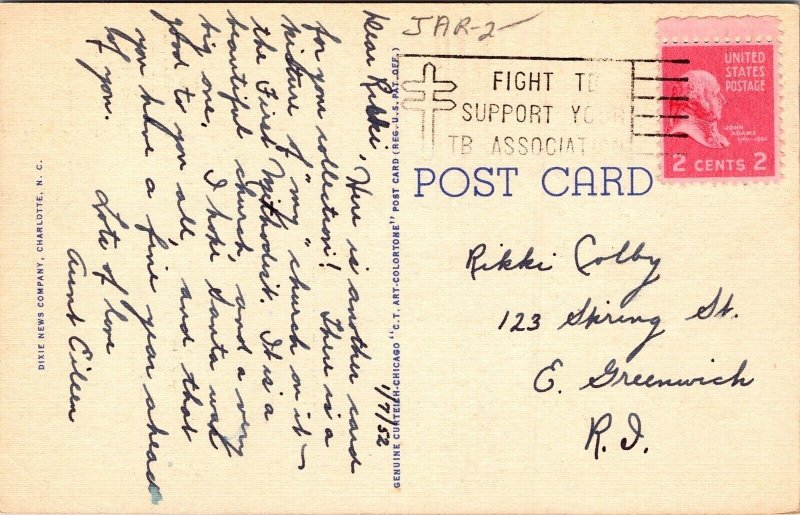 JAR-2-
FIGHT TB
SUPPORT YOUR
TB ASSOCIATION
UNITED
STATES
POSTAGE
JOHN
ADAMS
1797-1801
2 CENTS 2
POST CARD
Rikki Colby
123 Spring St.
E. Greenwich
R.I.
1/7/52
Dear Rikki,
Here is another card
for your collection! There is a
picture of "my" church on it -
the First Methodist. It is a
beautiful church, and a very
big one.
I hope Santa was
good to you all, and that
you have a fine year ahead
of you.
Lots of love
Aunt Eileen
GENUINE CURTEICH-CHICAGO "C.T. ART-COLORTONE" POST CARD (REG. U.S. PAT. OFF.)
DIXIE NEWS COMPANY, CHARLOTTE, N. C.